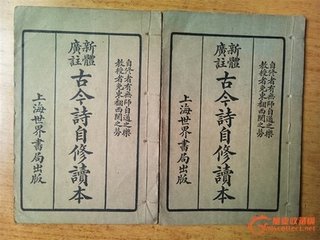 自修者有無師自通之樂
教授者免東翻西閱之勞
新體
廣註
古今詩自修讀本
上海世界書局出版
自修者有無師自通之樂
教授者免東翻西閱之勞
新體
廣註
古今詩自修讀本
上海世界書局出版